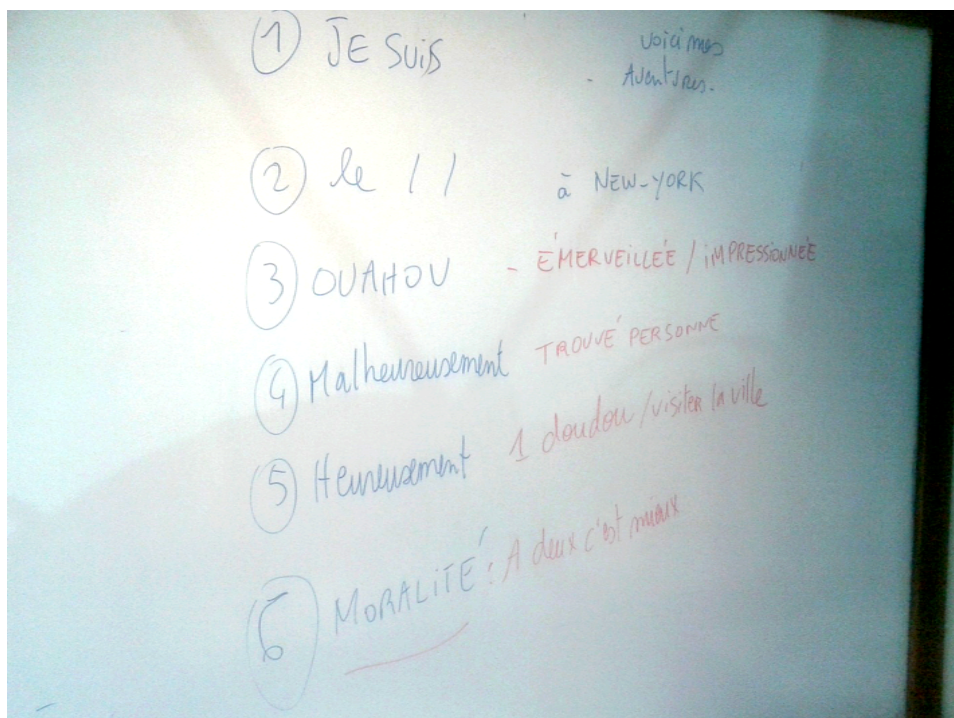 ① JE SUIS voici mes
- Aventures.
② le / / à NEW-YORK
③ OUAHOU - ÉMERVEILLÉE / IMPRESSIONNÉE
④ Malheureusement TROUVÉ PERSONNE
⑤ Heureusement 1 doudou / visiter la ville
⑥ MORALITÉ : A deux c'est mieux